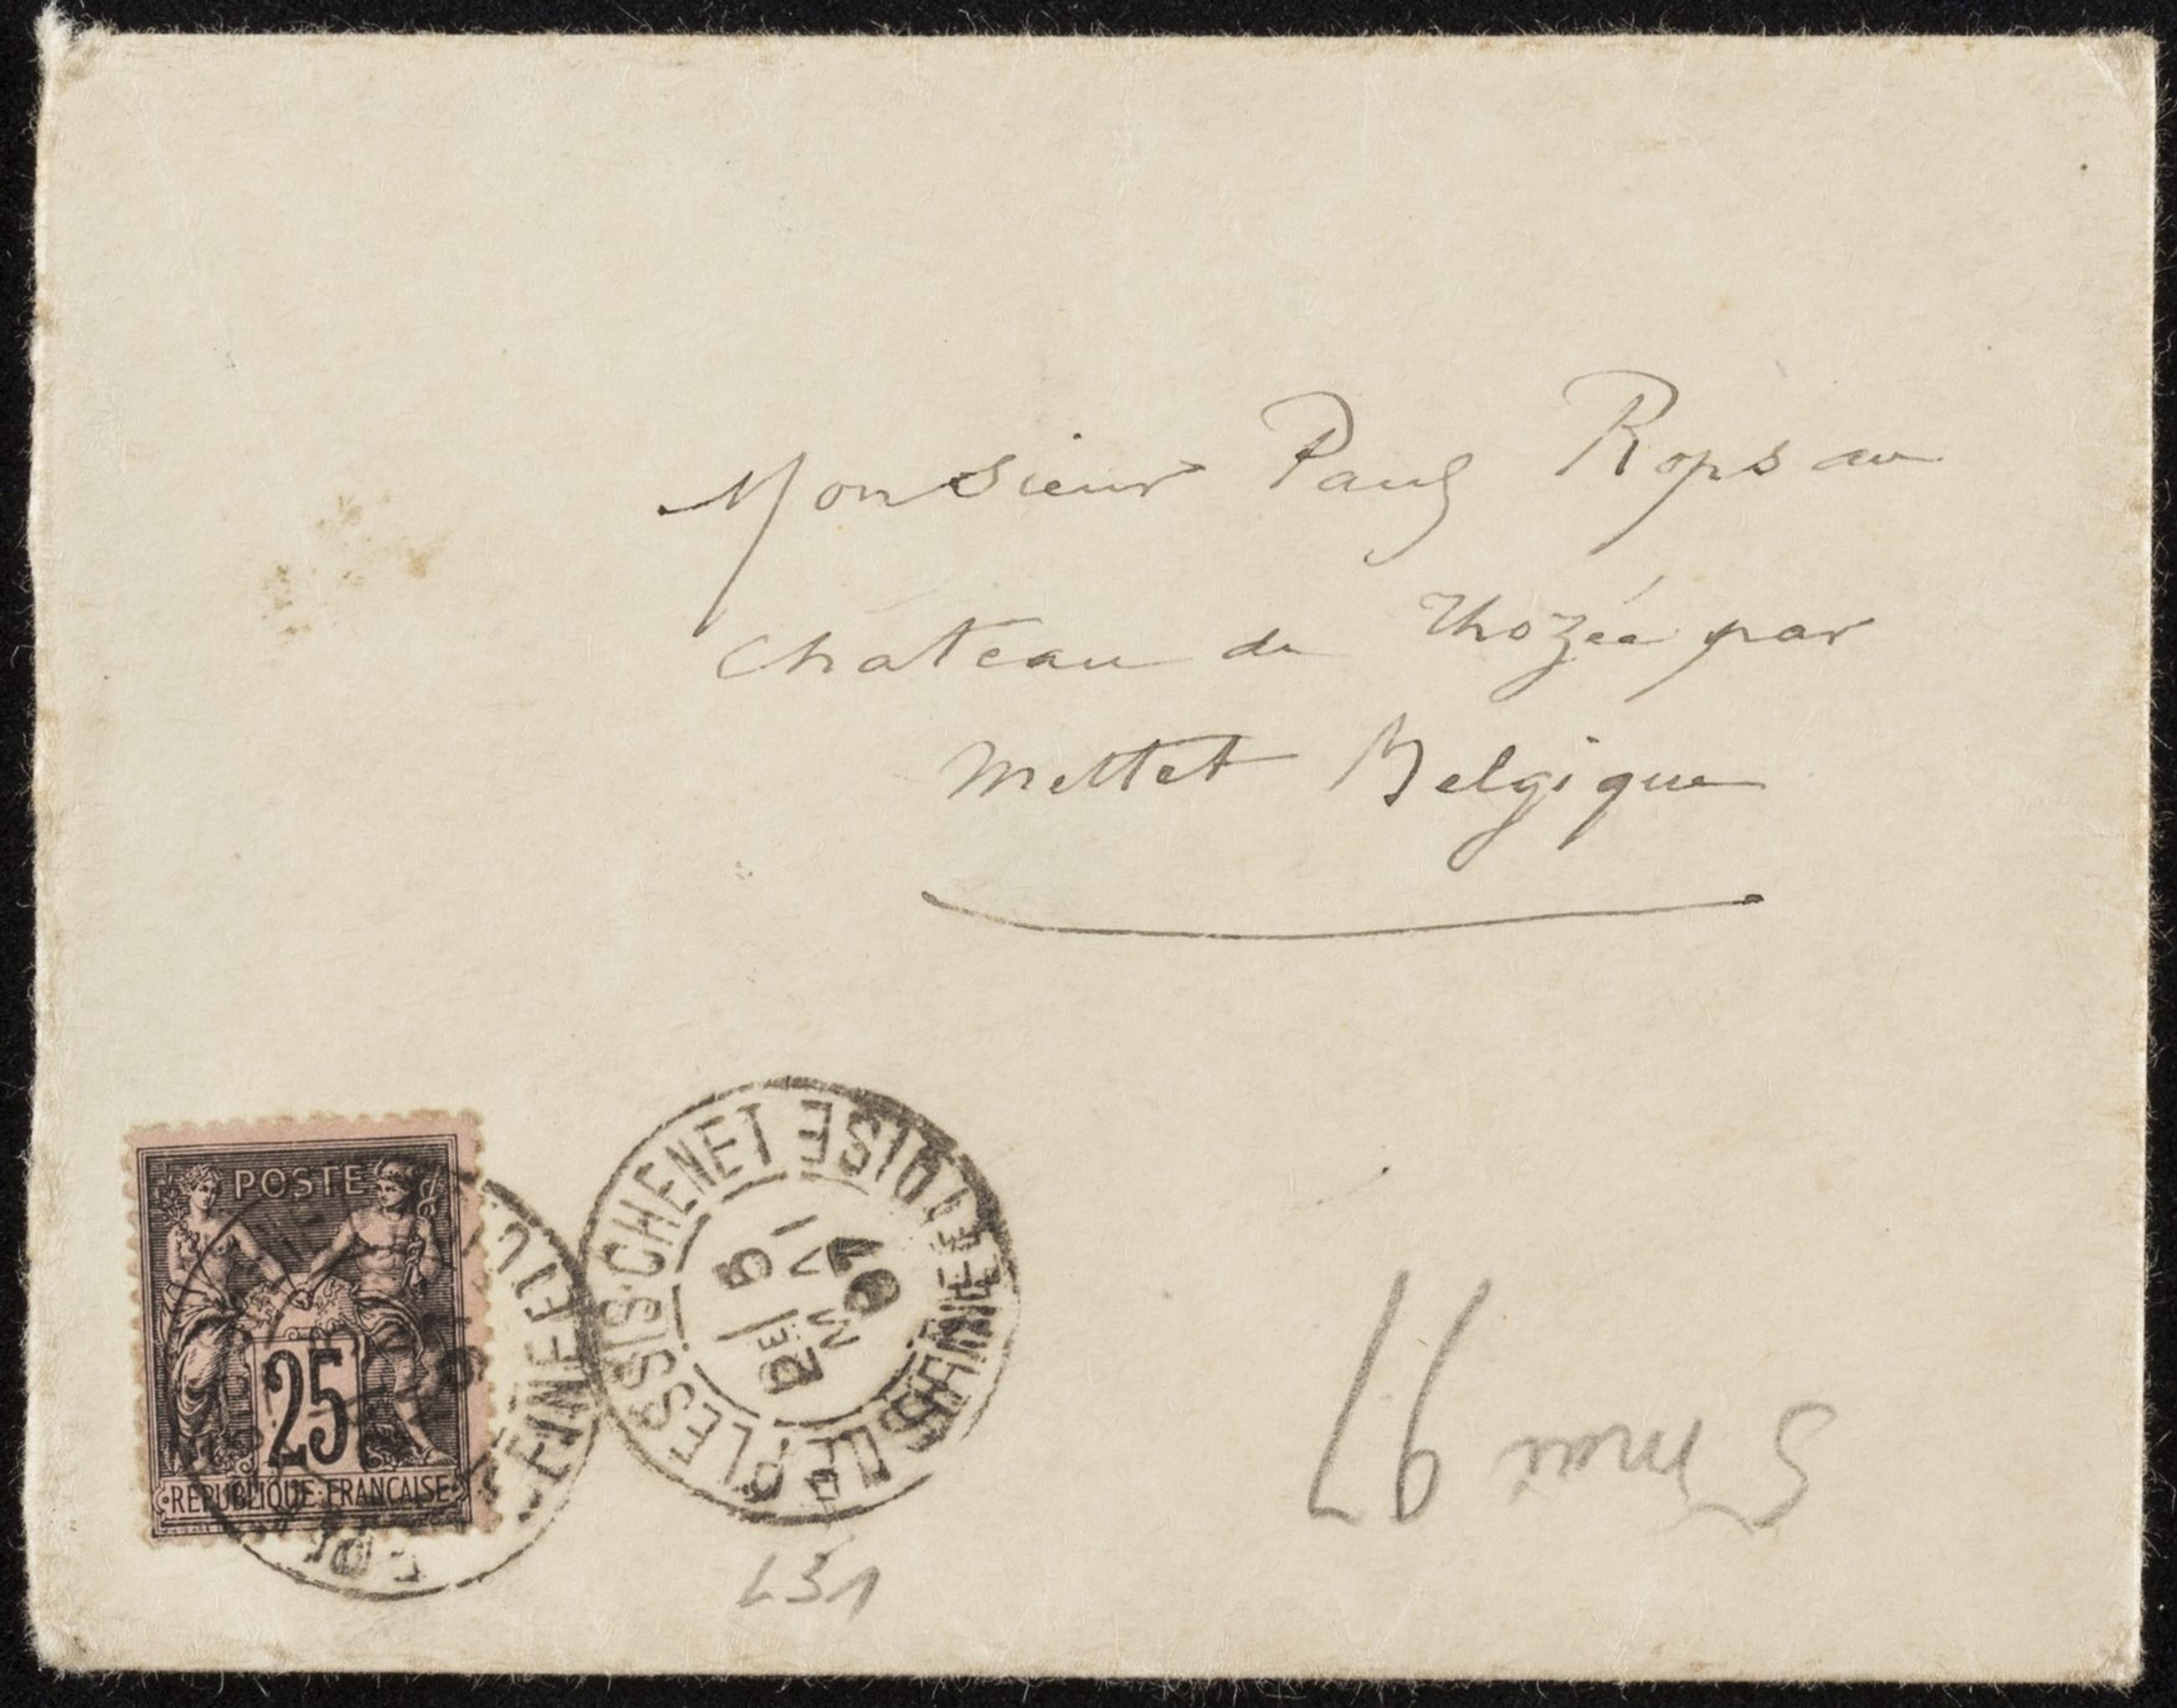 Monsieur Paul Rops au
Château de Thozée par
Mettet Belgique
POSTE
25
RÉPUBLIQUE FRANÇAISE
LE PLESSIS-CHENET
SEINE ET OISE
5
97
5 mai 97